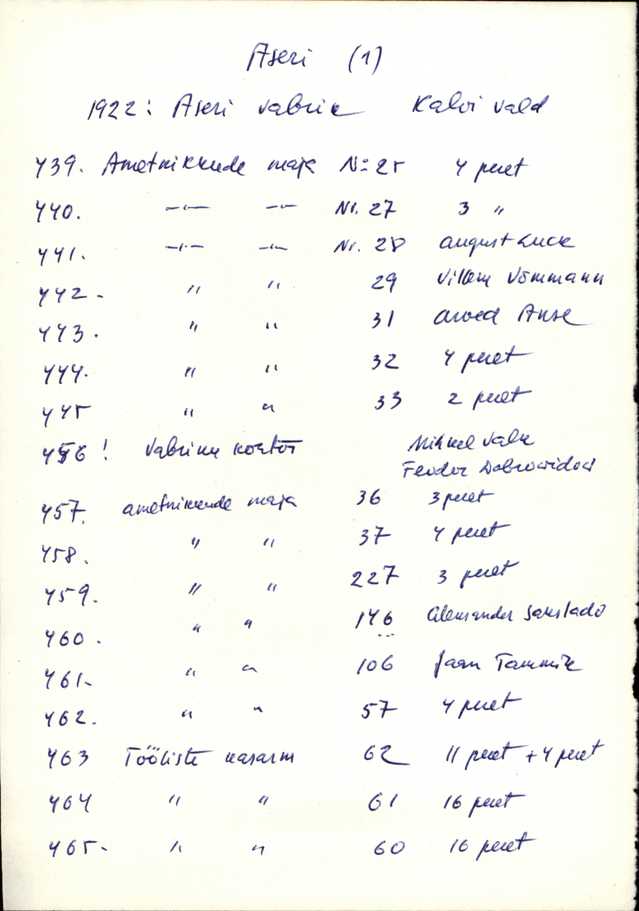 Aseri (1)
1922: Aseri vabrik Kalvi vald
439. Ametnikkude maja No 25 4 peret
440. —"— —"— Nr. 27 3 "
441. —"— —"— Nr. 28 August Luck
442. " " 29 Villem Võmmann
443. " " 31 Arved
444. " " 32 4 peret
445 " " 33 2 peret
456! Vabriku kontor Mihkel
Feodor Dobrovidov
457. ametnikkude maja 36 3 peret
458. " " 37 4 peret
459. " " 227 3 peret
460. " " 146 Aleksander
461. " " 106 Jaan Tammik
462. " " 57 4 peret
463 Tööliste kasarm 62 11 peret + 4 peret
464 " " 61 16 peret
465. " " 60 16 peret